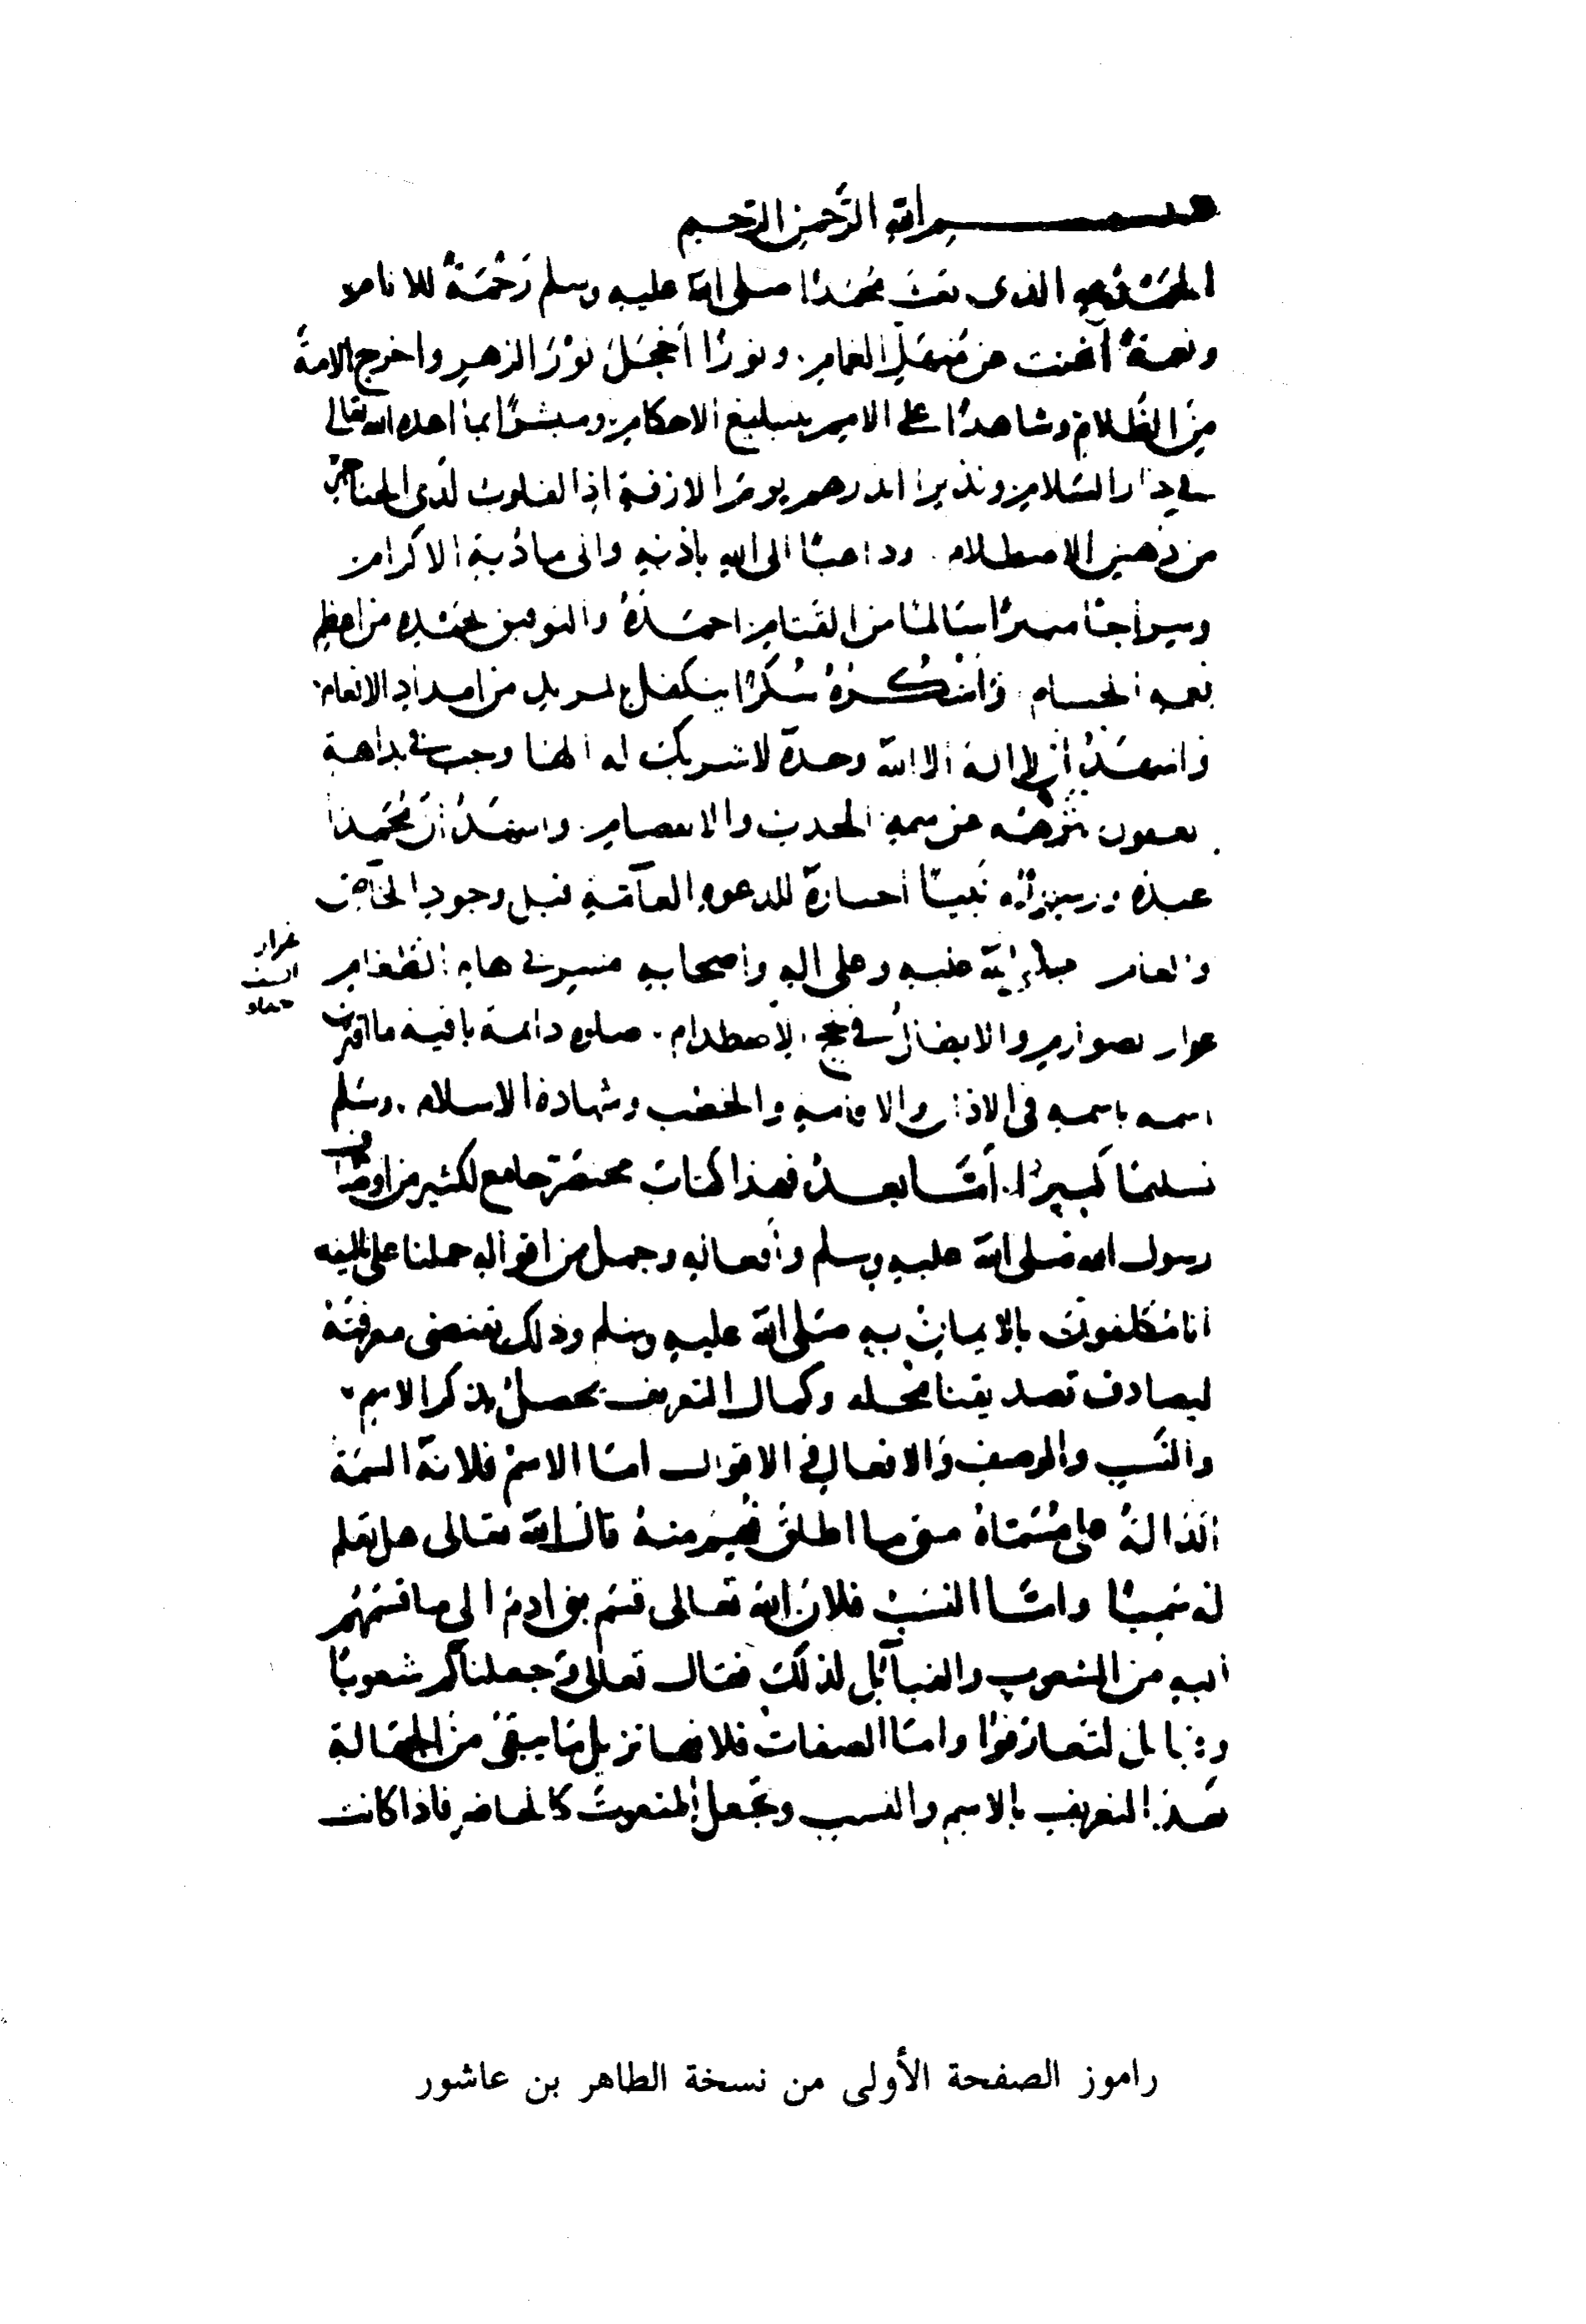 بسم الله الرحمن الرحيم
الحمد لله الذى بعث محمدا صلى الله عليه وسلم رحمة للانام
ونعمة أغنت عن منهل الغمام. ونورا أخجل نور الزهر واخرج الامة
من الظلام وشاهدا على الامم بتبليغ الاحكام ومبشرا بما اعده الله تعالى
في دار السلام ونذيرا انذرهم يوم الازفة اذ القلوب لدى الحناجر
من الاصطلام. وداعيا الى الله باذنه والى مادبة الاكرام
وسراجا منيرا سالما من القتام احمده والتوفيق لحمده من اعظم
نعمه الجسام. واشكره شكرا يتكفل بمزيد من امداد الانعام.
واشهد أن لا اله الا الله وحده لا شريك له الها وجب في بداهة
العقول تنزهه عن سمة الحدث والانفصام. واشهد أن محمدا
عبده ورسوله نبيا اختاره للدعوة العامة قبل وجود الخاص
والعام صلى الله عليه وعلى اله واصحابه في هام الطغام
غرار
السيف
غرار الصوارم والابطال في الاصطدام. صلوة دائمة باقية ما اقترن
اسمه باسمه فى الاذان والاقامة والخطب وشهادة الاسلام. وسلم
تسليما كبيرا. أما بعد فهذا كتاب مختصر جامع لكثير من اوصاف
رسول الله صلى الله عليه وسلم وأفعاله وجمل من اقواله حملنا على تاليفه
انا مكلفون بالايمان به صلى الله عليه وسلم وذلك يقتضى معرفته
ليصادف تصديقنا محله وكمال التعريف يحصل بذكر الاسم
والنسب والوصف والافعال في الاقوال اما الاسم فلانه السمة
الدالة على مسماه متى ما اطلق فهم منه قال الله تعالى هل تعلم
له سميا واما النسب فلان الله تعالى قسم بنى ادم الى ما قسمهم
اليه من الشعوب والقبائل لذلك فقال تعالى وجعلناكم شعوبا
وقبائل لتعارفوا واما الصفات فلانها تزيل ما يبقى من الجهالة
بعد التعريف بالاسم والنسب وتجعل المنعوت كالحاضر فاذا كانت
راموز الصفحة الأولى من نسخة الطاهر بن عاشور